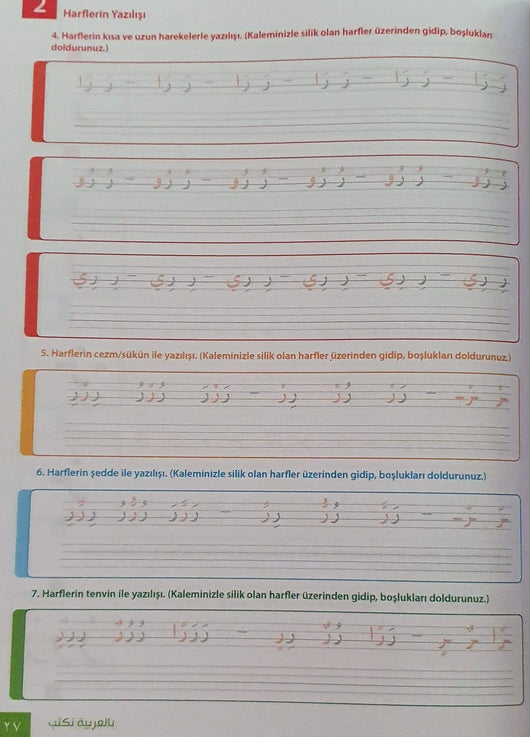 2
Harflerin Yazılışı
4. Harflerin kısa ve uzun harekelerle yazılışı. (Kaleminizle silik olan harfler üzerinden gidip, boşlukları
doldurunuz.)
رَ رَا – رَ رَا – رَ رَا – رَ رَا – رَ رَا – رَ رَا
رُ رُو – رُ رُو – رُ رُو – رُ رُو – رُ رُو – رُ رُو
رِ رِي – رِ رِي – رِ رِي – رِ رِي – رِ رِي – رِ رِي
5. Harflerin cezm/sükûn ile yazılışı. (Kaleminizle silik olan harfler üzerinden gidip, boşlukları doldurunuz.)
رْ ـرْـ – رَرْ رُرْ رِرْ – رَرْرَ رُرْرُ رِرْرِ
6. Harflerin şedde ile yazılışı. (Kaleminizle silik olan harfler üzerinden gidip, boşlukları doldurunuz.)
7. Harflerin tenvin ile yazılışı. (Kaleminizle silik olan harfler üzerinden gidip, boşlukları doldurunuz.)
رًا رٌ رٍ – رَرًا رُرٌ رِرٍ – رَرَرًا رُرُرٌ رِرِرٍ
٢٧ بالعربية نكتب